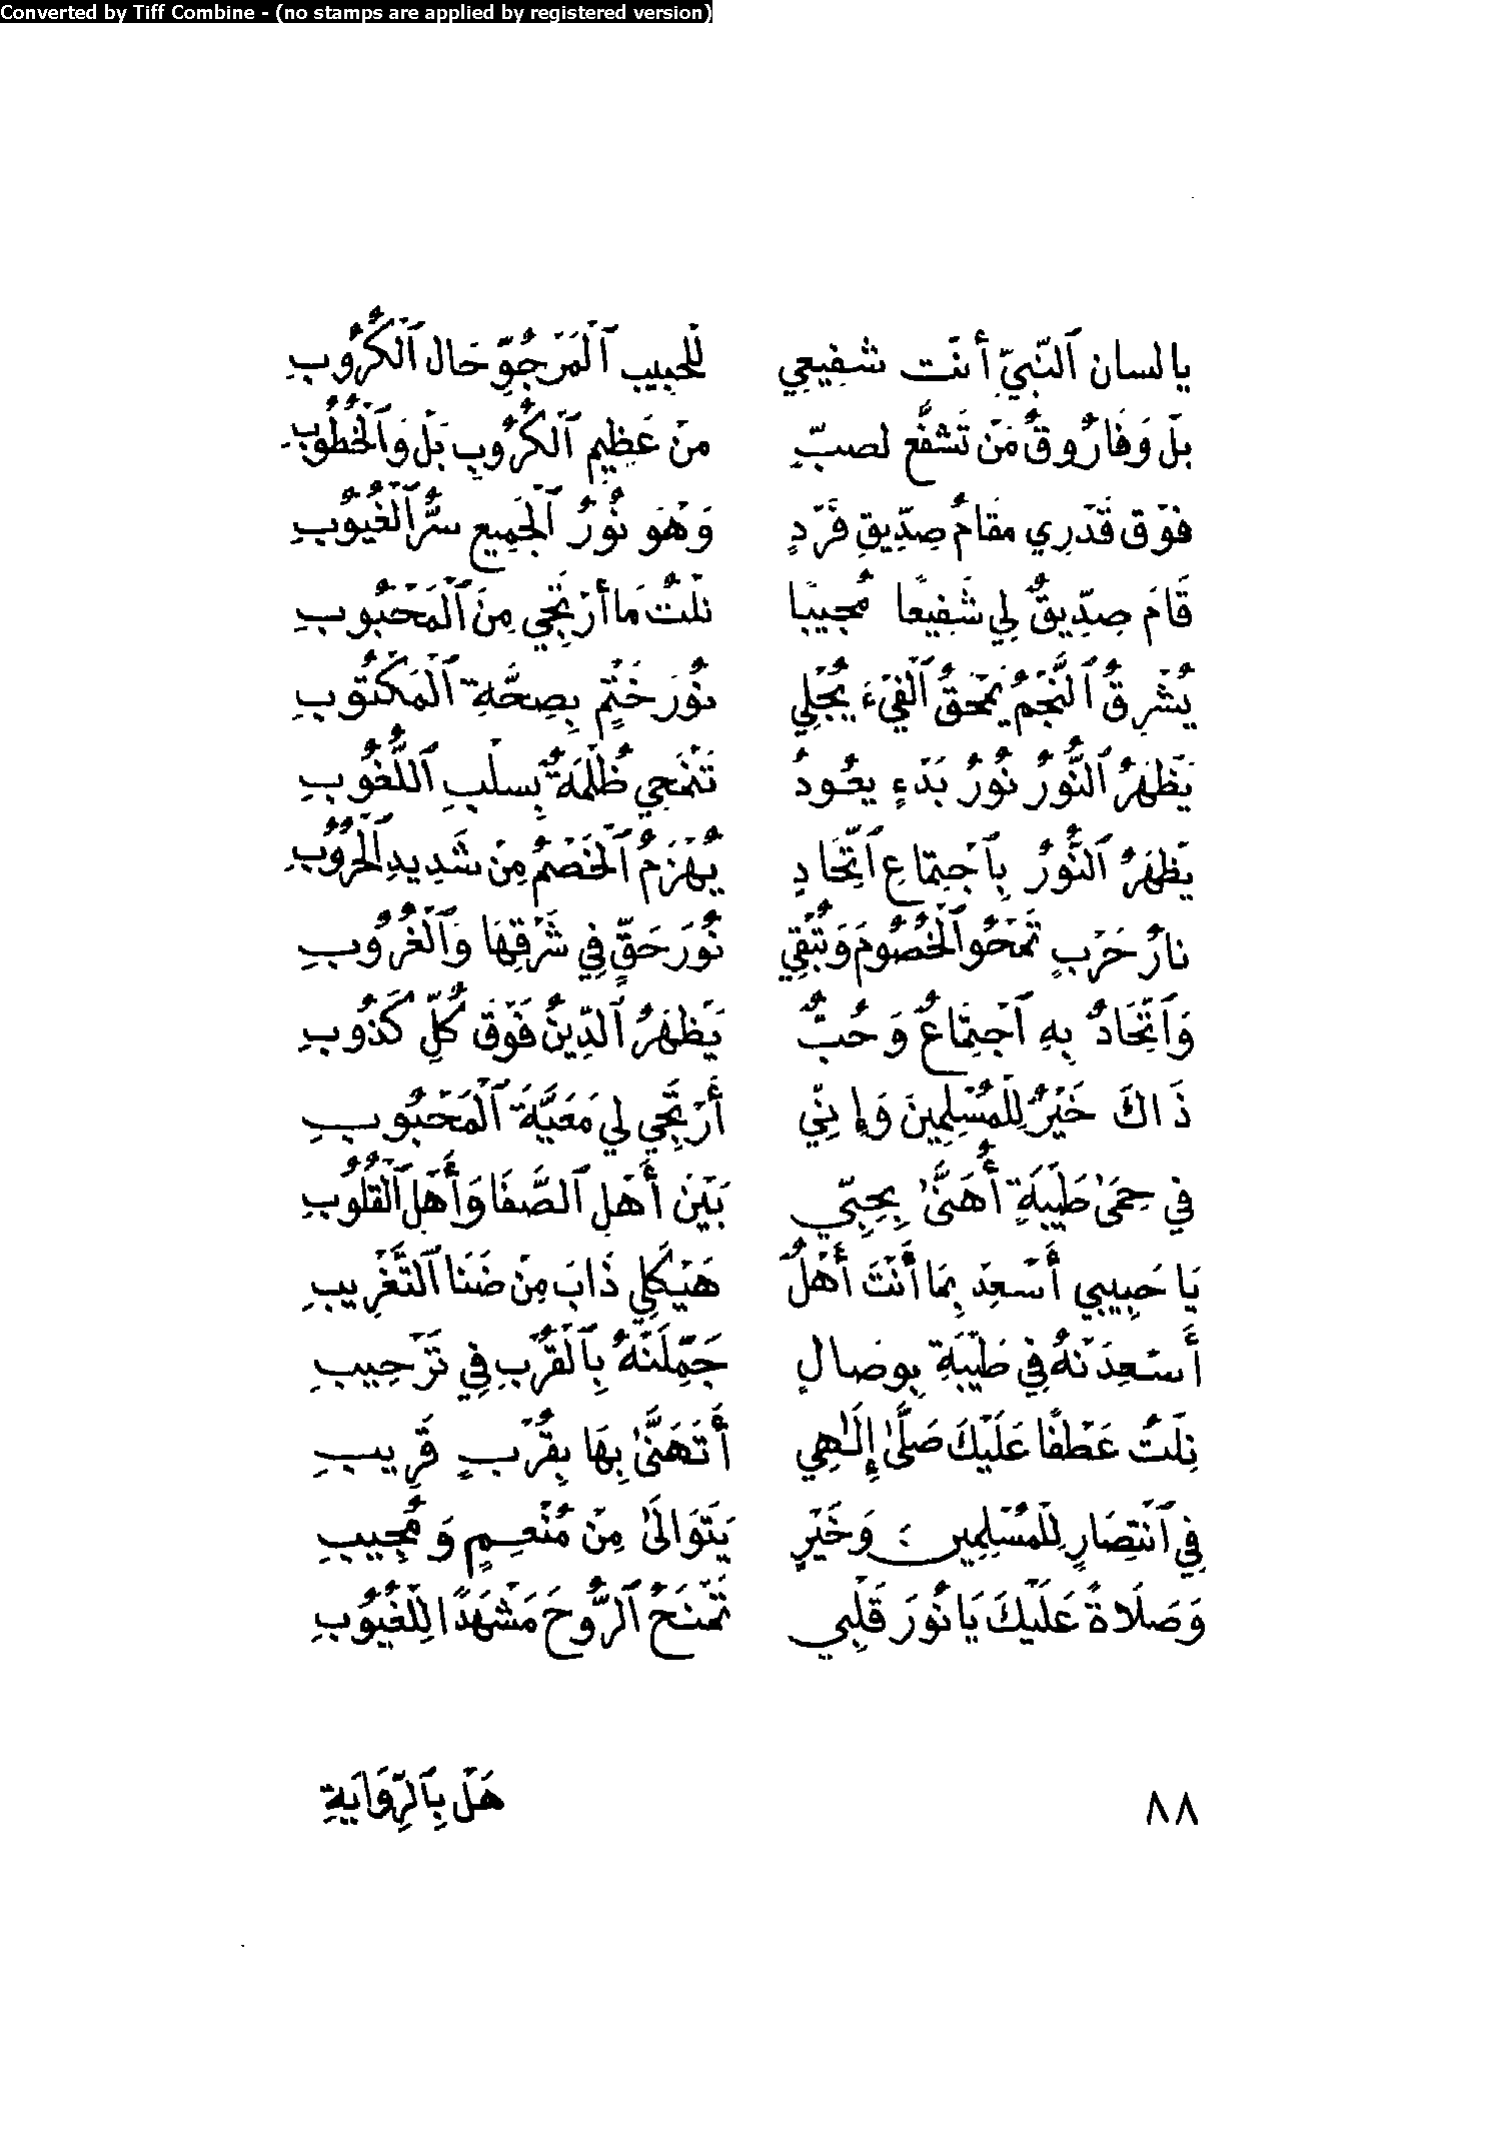 Converted by Tiff Combine - (no stamps are applied by registered version)
يا لسان ٱلنَّبِيِّ أنْت شفِيعِي لِلْحَبِيبِ ٱلْمَرْجُوِّ حَال ٱلْكُرُوبِ
بلْ وَفَارُوقُ مَنْ تَشفَّع لصبٍّ منْ عَظِيمِ ٱلْكُرُوبِ بَلْ وَٱلْخُطُوبِ
فوْق قَدْرِي مقَامُ صِدِّيقِ فَرْدٍ وَهْوَ نُورُ ٱلْجَمِيعِ سرُّ ٱلْغُيُوبِ
قَامَ صِدِّيقٌ لِي شَفِيعًا مُجيبًا نلْتُ مَا أرْتَجِي مِنَ ٱلْمَحْبُوبِ
يُشْرِقُ ٱلنَّجْمُ يَمْحَقُ ٱلْفَيْءَ يُجْلِي نُورَ خَتْمٍ بِصِحَّةِ ٱلْمَكْتُوبِ
يَظْهَرُ ٱلنُّورُ نُورُ بَدْءٍ يعُودُ تَنْمَحِي ظُلْمَةٌ بِسلْبِ ٱللُّغُوبِ
يَظْهَرُ ٱلنُّورُ بِٱجْتِمَاعِ ٱتِّحَادٍ يُهْزَمُ ٱلْخَصْمُ مِنْ شَدِيدِ ٱلْحُرُوبِ
نارُ حَرْبٍ تَمْحُو ٱلْخُصُومَ وَتُبْقِي نُورَ حَقٍّ فِي شَرْقِهَا وَٱلْغُرُوبِ
وَٱتِّحَادٌ بِهِ ٱجْتِمَاعٌ وَحُبٌّ يَظْهَرُ ٱلدِّينُ فَوْقَ كُلِّ كَذُوبِ
ذَاكَ خَيْرٌ لِلْمُسْلِمِينَ وَإِنِّي أَرْتَجِي لِي مَعَيَّةَ ٱلْمَحْبُوبِ
فِي حِمَىٰ طَيْبَةٍ أُهَنَّىٰ بِحِبِّي بَيْنَ أَهْلِ ٱلصَّفَا وَأَهْلِ ٱلْقُلُوبِ
يَا حَبِيبِي أَسْعِدْ بِمَا أَنْتَ أَهْلٌ هَيْكَلِي ذَابَ مِنْ ضَنَا ٱلتَّغْرِيبِ
أَسْعِدَنْهُ فِي طَيْبَةِ بِوِصَالٍ جَمِّلَنْهُ بِٱلْقُرْبِ فِي تَرْحِيبِ
نِلْتُ عَطْفًا عَلَيْكَ صَلَّىٰ إِلَـٰهِي أَتَهَنَّىٰ بِهَا بِقُرْبٍ قَرِيبِ
فِي ٱنْتِصَارٍ لِلْمُسْلِمِين : وَخَيْرٍ يَتَوَالَىٰ مِنْ مُنْعِمٍ وَمُجِيبِ
وَصَلَاةٌ عَلَيْكَ يَا نُورَ قَلْبِي تَمْنَحُ ٱلرُّوحَ مَشْهَدًا لِلْغُيُوبِ
٨٨ هَلْ بِٱلرِّوَايَةِ